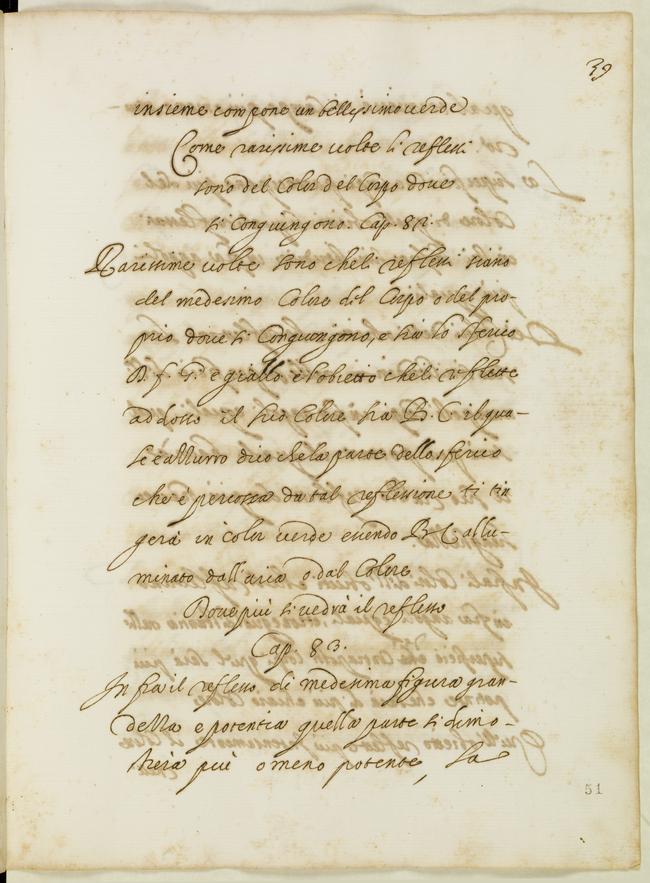 39
insieme compone un bellissimo verde
Come rarissime volte li reflessi
sono del Color del Corpo dove
si Congiungono. Cap. 82.
Rarissime volte sono che li reflessi siano
del medesimo Colore del Corpo o del pro-
prio dove si Congiongono, e sia lo sferico
D. f. G. e giallo e l'obietto che li reflette
addosso il suo Colore sia B. C il qua-
le è azzurro dico che la parte dello sferico
che è percossa da tal reflessione si tin
gerà in color verde essendo B C allu-
minato dall'aria o dal Colore
Dove più si vedrà il reflesso
Cap. 83.
Infra il reflesso di medesima figura gran-
dezza e potentia quella parte si dimo-
sterà più o meno potente, La
51